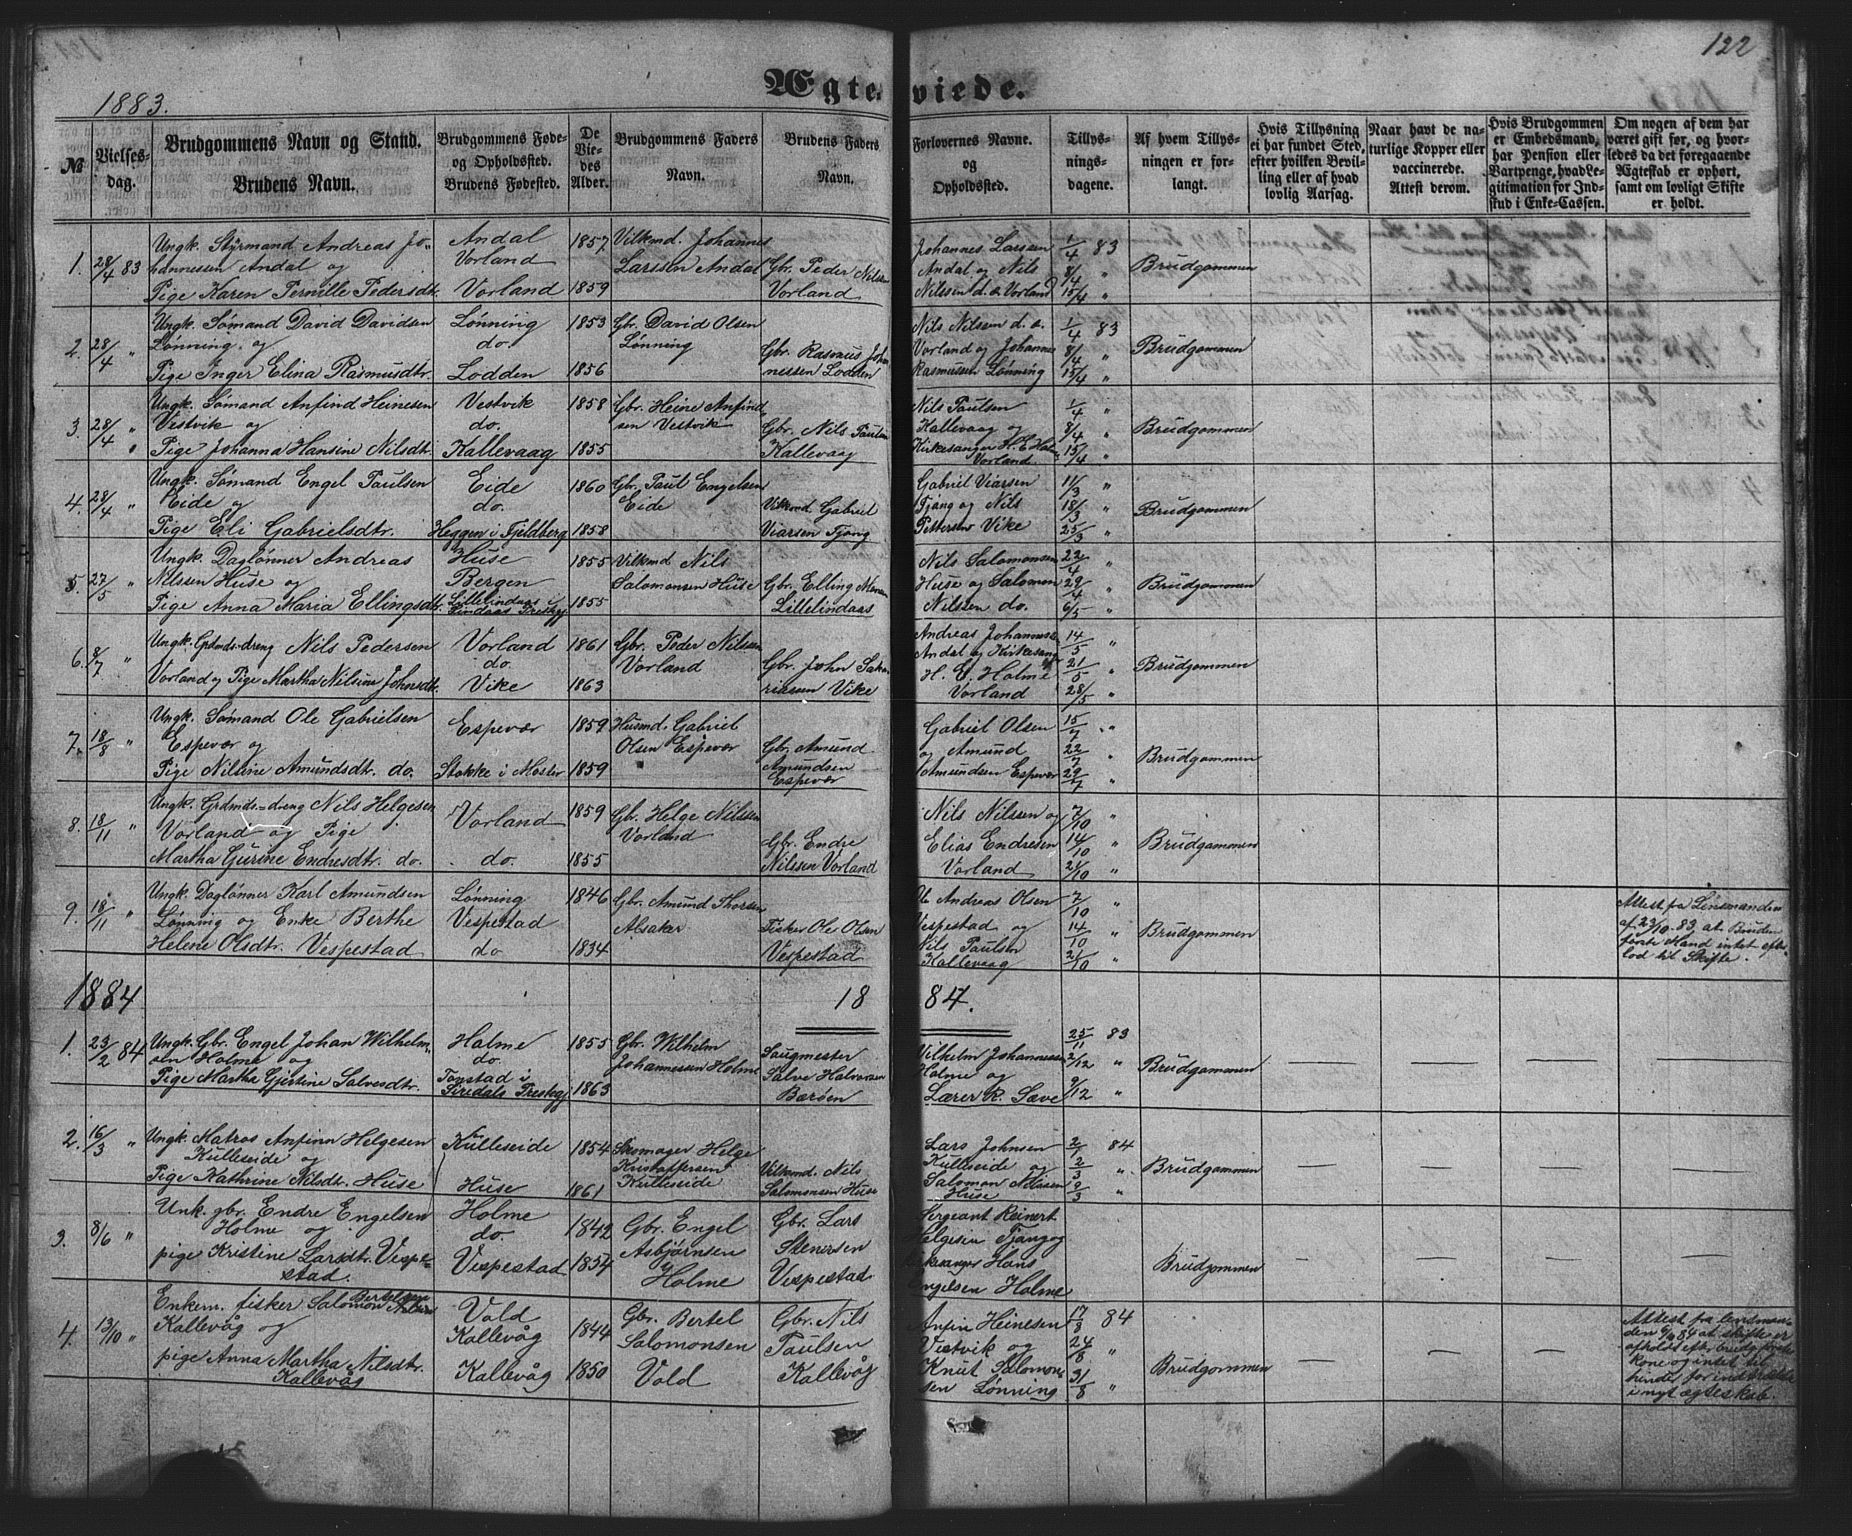 122
1883.
Ægteviede.
№
Vielses-
dag.
Brudgommens Navn og Stand.
Brudens Navn.
Brudgommens Føde-
og Opholdssted.
Brudens Fødested.
De
Vie-
des
Alder.
Brudgommens Faders
Navn.
Brudens Faders
Navn.
Forlovernes Navne.
og
Opholdssted.
Tillys-
nings-
dagene.
Af hvem Tillys-
ningen er for-
langt.
Hvis Tillysning
ei har fundet Sted,
efter hvilken Bevil-
ling eller af hvad
lovlig Aarsag.
Naar havt de na-
turlige Kopper eller
vaccinerede.
Attest derom.
Hvis Brudgommen
er Embedsmand,
har Pension eller
Vartpenge, hvad Le-
gitimation for Ind-
skud i Enke-Cassen.
Om nogen af dem har
været gift før, og hvor-
ledes da det foregaaende
Ægteskab er ophørt,
samt om lovligt Skifte
er holdt.
1. 28/4 83
Ungk. Styrmand Andreas Jo-
hannessen Andal og
Pige Karen Pernille Pedersdtr.
Andal
Vorland
Vorland
1857
1859
Vilkmd. Johannes
Larssen Andal
Gbr. Peder Nilssen
Vorland
Johannes Larssen
Andal og Nils
Nilssen d. æ Vorland
1/4 83
8/4 "
15/4 "
Brudgommen
2. 28/4 "
Ungk. Sømand David Davidsen
Lønning og
Pige Inger Elina Rasmusdtr.
Lønning
do.
Lodden
1853
1856
Gbr. David Olsen
Lønning
Gbr. Rasmus Johan-
nessen Lodden
Nils Nilsen d. æ.
Vorland og Johannes
Rasmussen Lønning
1/4 83
8/4 "
15/4 "
Brudgommen
3. 28/4 "
Ungk. Sømand Anfind Heinesen
Vestvik og
Pige Johanna Hansine Nilsdtr.
Vestvik
do.
Kallevaag
1858
1855
Gbr. Heine Anfind-
sen Vestvik
Gbr. Nils Paulsen
Kallevaag
Nils Paulsen
Kallevaag og
Kirkesanger H. E. Holme
Vorland
1/4 "
8/4 "
15/4 "
Brudgommen
4. 28/4 "
Ungk. Sømand Engel Paulsen
Eide og
Pige Eli Gabrielsdtr.
Eide
do.
Heggen i Fjeldberg
1860
1858
Gbr. Paul Engelsen
Eide
Vilkmd Gabriel
Viarsen Tjong
Gabriel Viarsen
Tjang og Nils
Pettersen Vike
11/3 "
18/3 "
25/3 "
Brudgommen
5. 27/5 "
Ungk. Daglønner Andreas
Nilssen Huse og
Pige Anna Maria Ellingsdtr.
Huse
Bergen
Lillelindaas i
Lindaas Prestegj
1855
1855
Vilkmd Nils
Salomonsen Huse
Gbr. Elling
Lillelindaas
Nils Salomonsen
Huse og Salomon
Nilssen do.
22/4 "
29/4 "
6/5 "
Brudgommen
6. 8/7 "
Ungk. Grdmds-dreng Nils Pedersen
Vorland og Pige Martha Nilsine Johnsdtr.
Vorland
do.
Vike
1861
1863
Gbr. Peder Nilsen
Vorland
Gbr. John Saka-
riassen Vike
Andreas Johannessen
Andal og Kirkesang
H. E. Holme
Vorland
14/5 "
21/5 "
28/5 "
Brudgommen
7. 18/8 "
Ungk. Sømand Ole Gabrielsen
Espevær og
Pige Nilsine Amundsdtr. do.
Espevær
Stokke i Moster
1859
1859
Husmd. Gabriel
Olsen Espevær
Gbr. Amund
Amundsen
Espevær
Gabriel Olsen
og Amund
Amundsen Espevær
15/7 "
22/7 "
29/7 "
Brudgommen
8. 18/11 "
Ungk. Grdmds-dreng Nils Helgesen
Vorland og Pige
Martha Gurine Endresdtr. do.
Vorland
do.
1859
1855
Gbr. Helge Nilssen
Vorland
Gbr. Endre
Nilssen Vorland
Nils Nilssen og
Elias Endresen
Vorland
7/10 "
14/10 "
21/10 "
Brudgommen
9. 18/11 "
Ungk. Daglønner Karl Amundsen
Lønning og Enke Berthe
Helene Olsdtr. Vespestad
Lønning
Vespestad
do
1846
1834
Gbr. Amund Thorsen
Alsaker
Fisker Ole Olsen
Vespestad
Andreas Olsen
Vespestad og
Nils Paulsen
Kallevaag
7/10 "
14/10 "
21/10 "
Brudgommen
Attest fra Lensmanden
af 23/10 83, at Bruden
første Mand intet efter-
lod til Skifte.
1884 1884.
1. 23/2 84
Ungk. Gbr. Engel Johan Wilhelm-
sen Holme og
Pige Martha Gjertine Salvesdtr.
Holme
do.
Tonstad i
Siredals Prestegj
1855
1863
Gbr. Wilhelm
Johannessen Holme
Saugmester
Salve Halvorsen
Barøen
Vilhelm Johannessen
Holme og
Lærer R. Sæve
25/11 83
2/12 "
9/12 "
Brudgommen
2. 16/3 "
Ungk. Matros Anfinn Helgesen
Kulleseide og
Pige Kathrine Nilsdtr. Huse
Kulleseide
Huse
1854
1861
Skomager Helge
Kristoffersen
Kulleseide
Vilkmd. Nils
Salomonsen Huse
Lars Johnsen
Kulleseide og
Salomon Nilssen
Huse
84
2/3 "
9/3 "
Brudgommen
3. 8/6 "
Unk. gbr. Endre Engelsen
Holme og
pige Kristine Larsdtr. Vespe-
stad.
Holme
do
Vespestad
1842
1854
Gbr. Engel
Asbjørnsen
Holme
Gbr. Lars
Stenersen
Vespestad
Sergeant Reinert
Helgesen Tjang og
Kirkesanger Hans
Engelsen Holme
Brudgommen
4. 13/10 "
Enkem. fisker Salomon Bertelsen
Kallevåg og
pige Anna Martha Nilsdtr.
Kallevåg
Vold
Kallevåg
Kallevåg
1844
1850
Gbr. Bertel
Salomonsen
Vold
Gbr. Nils
Paulsen
Kallevåg
Anfin Heinesen
Vestvik og
Knut Salomon-
sen Lønning
17/8 84
24/8 "
31/8 "
Brudgommen
Attest fra lensman-
den 84 at skifte er
afholdt eft. brudg. første
kone og intet til
hinder for indtræden
i nyt ægteskab.